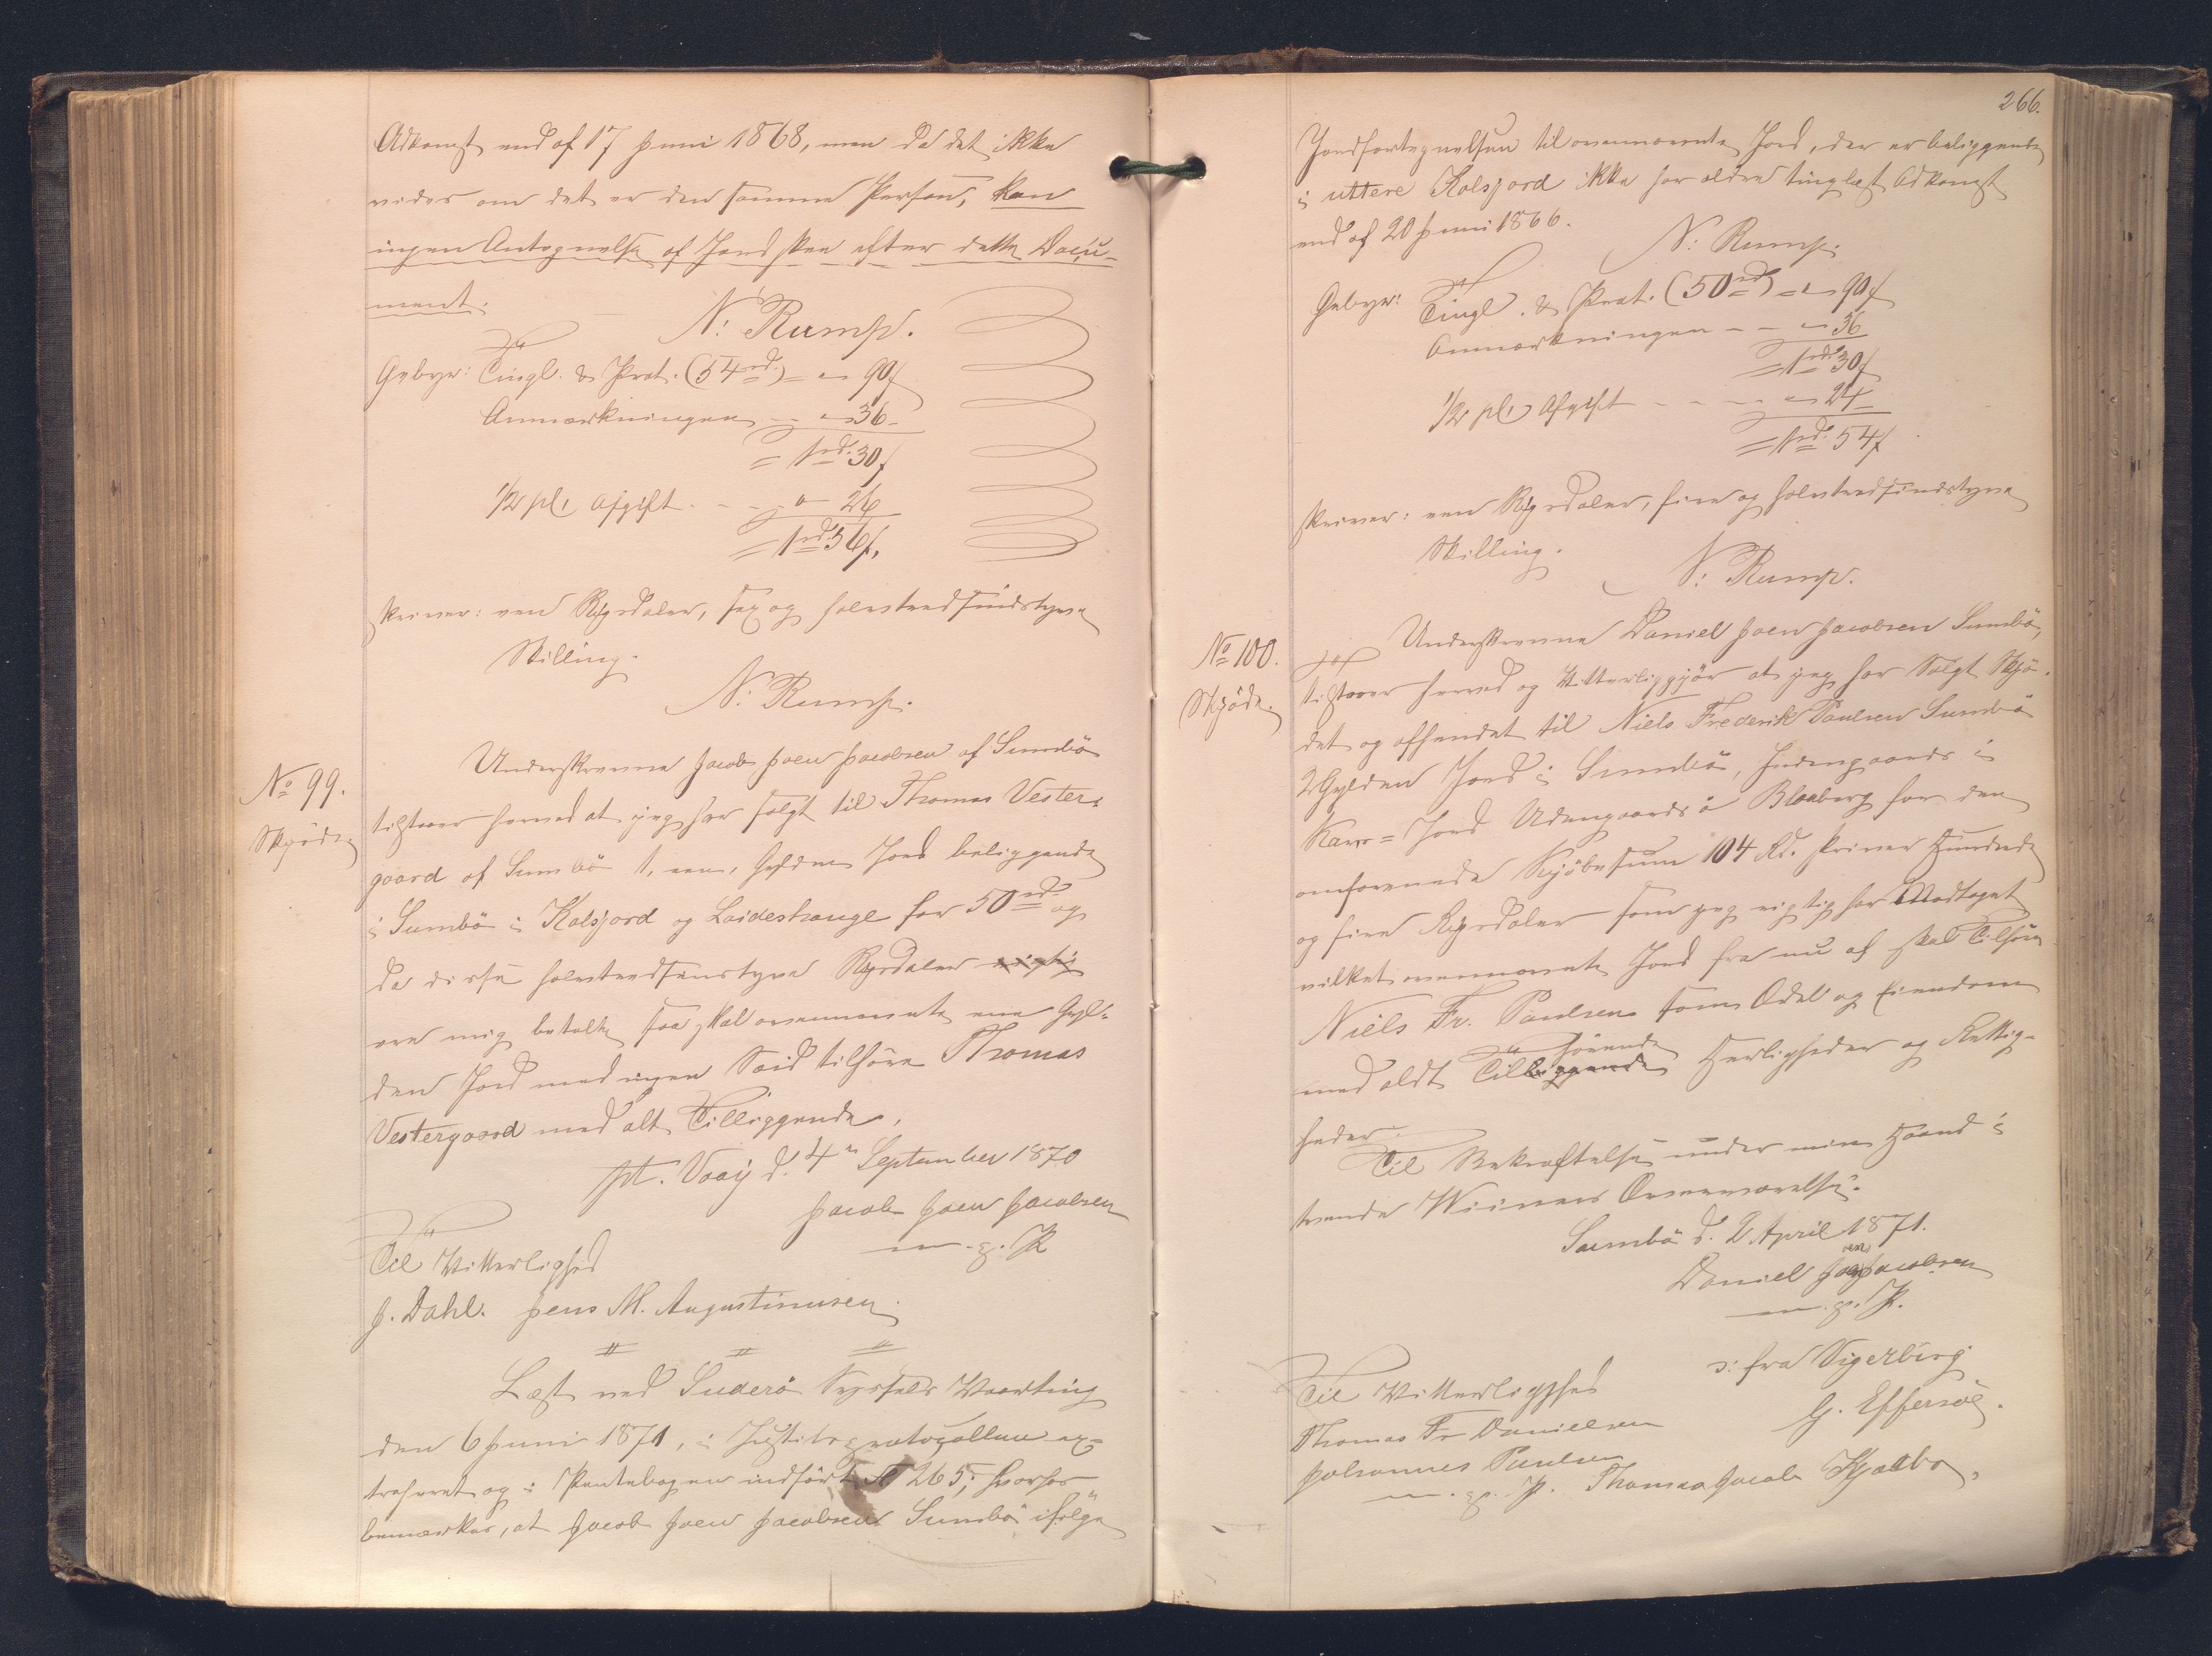 Adkomst end af 17 Juni 1868, men da det ikke
vides om det er den samme Person, kan
ingen Antegnelse af Jord skee efter dette Docu-
ment.
N: Rump.
Gebyr: Tingl. & Prot. (54 rd.) = " 90 s
Anmærkningen - " 36 -
= 1 rd. 30 s
1/2 pCt Afgift - - - " 26
= 1 rd. 56 s,
skriver: een Rigsdaler, sex og halvtredsindstyve
Skilling.
N: Rump.
No 99.
Skjøde
Underskrevne Jacob Joen Jacobsen af Sumbö
tilstaaer herved at jeg har solgt til Thomas Vester-
gaard af Sumbö 1, een, Gylden Jord beliggende
i Sumbö i Kolsjord og Laideshauge for 50 rd. og
da disse halvtredsindstyve Rigsdaler
ere mig betalte saa skal ovennævnte ene Gyl-
den Jord med ingen Said tilhöre Thomas
Vestergaard med alt Tilliggende.
pt. Vaag d. 4 September 1870
Jacob Joen Jacobsen
m. p. P
Til Vitterlighed
J. Dahl. Jens M. Augustinusen.
Læst ved Suderö Syssels Vaarting
den 6 Juni 1871, i Justitsprotocollen ex-
traheret og i Pantebogen indført fol 265; hvorhos
bemærkes, at Jacob Joen Jacobsen Sumbö ifölge
266.
Jordfortegnelsen til ovennævnte Jord, der er beliggende
i uttere Kolsjord ikke har ældre tinglæst Adkomst
end af 20 Juni 1866.
N: Rump.
Gebyr: Tingl. & Prot. (50 rd) = " 90 s
Anmærkningen - - " 36
= 1 rd. 30 s
1/2 pCt Afgift - - - " 24
= 1 rd. 54 s
skriver: een Rigsdaler, fire og halvtredsindstyve
Skilling.
N: Rump.
No 100.
Skjøde.
Underskrevne Daniel Joen Jacobsen Sumbö,
tilstaaer herved og Vitterliggjör at jeg har Solgt Skjö-
det og afhendet til Niels Frederik Paulsen Sumbö
2 Gylden Jord i Sumbö, Indengaards i
Jord Udengaards i Blaaberg for den
omforenede Kjöbesum 104 Rd. skriver Hundrede
og fire Rigsdaler som jeg rigtig har Modtaget
vilket ovennævnte Jord fra nu af skal Tilhøre
Niels Fr. Paulsen som Odel og Eiendom
hörende
med aldt Tilliggende Herligheder og Rettig-
heder.
Til Bekræftelse under min Haand i
tvende Widners Overværelse.
Sumbö d. 2 April 1871.
Daniel Joen Jacobsen
m. p. P.
ɔ: fra Vigerbirg
Til Vitterlighed
G. Effersöe.
Thomas Fr Danielsen
Johannes Paulsen
m. p. P. Thomas Jacob Kjælbo,